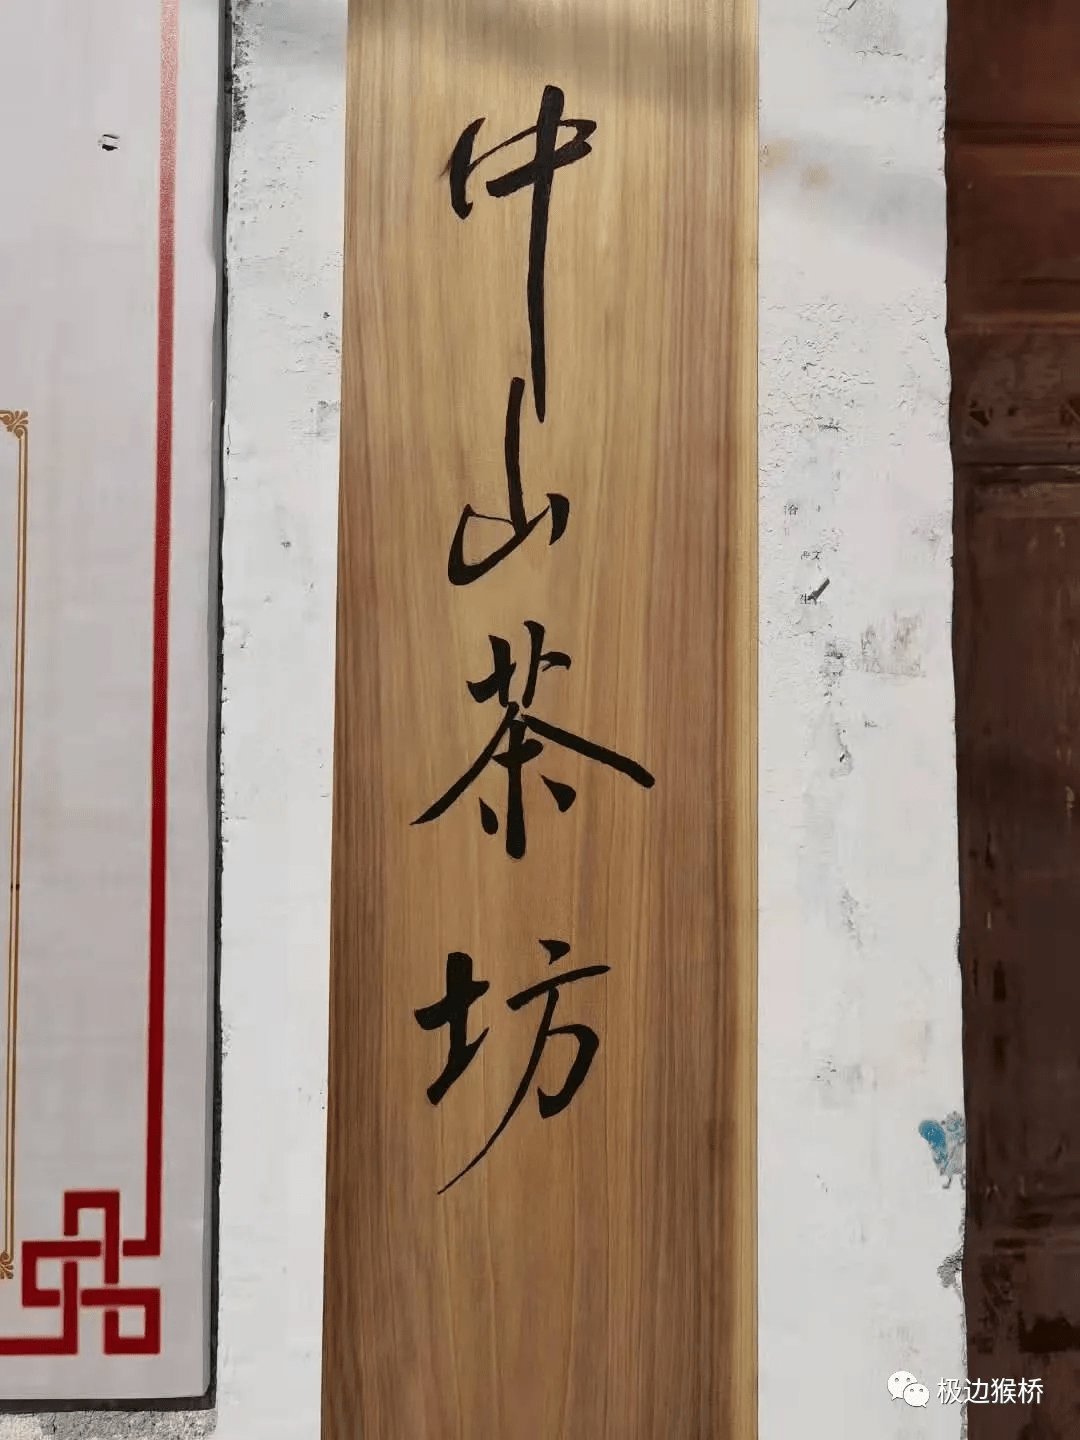 中山茶坊
极边猴桥